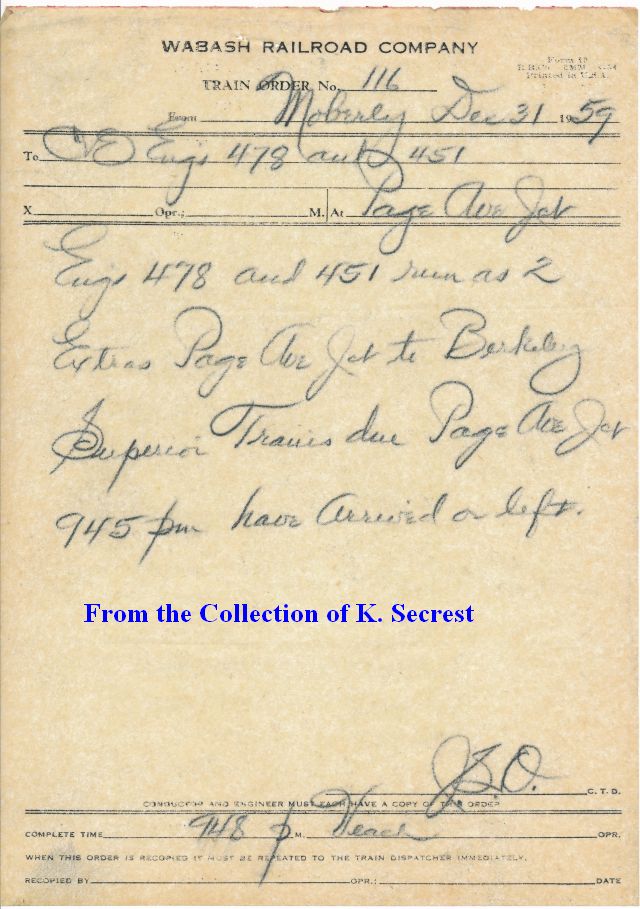 WABASH RAILROAD COMPANY
Form 19
Printed in U.S.A.
TRAIN ORDER No. 116
From Moberly Dec 31 1959
To C&E Engs 478 and 451
X Opr.; M. At Page Ave Jct
Engs 478 and 451 run as 2
Extras Page Ave Jct to Berkeley
Superior Trains due Page Ave Jct
945 pm have Arrived or left.
From the Collection of K. Secrest
J.S.O. C. T. D.
CONDUCTOR AND ENGINEER MUST EACH HAVE A COPY OF THIS ORDER
COMPLETE TIME 948 p M. Veach OPR.
WHEN THIS ORDER IS RECOPIED IT MUST BE REPEATED TO THE TRAIN DISPATCHER IMMEDIATELY.
RECOPIED BY OPR.: DATE